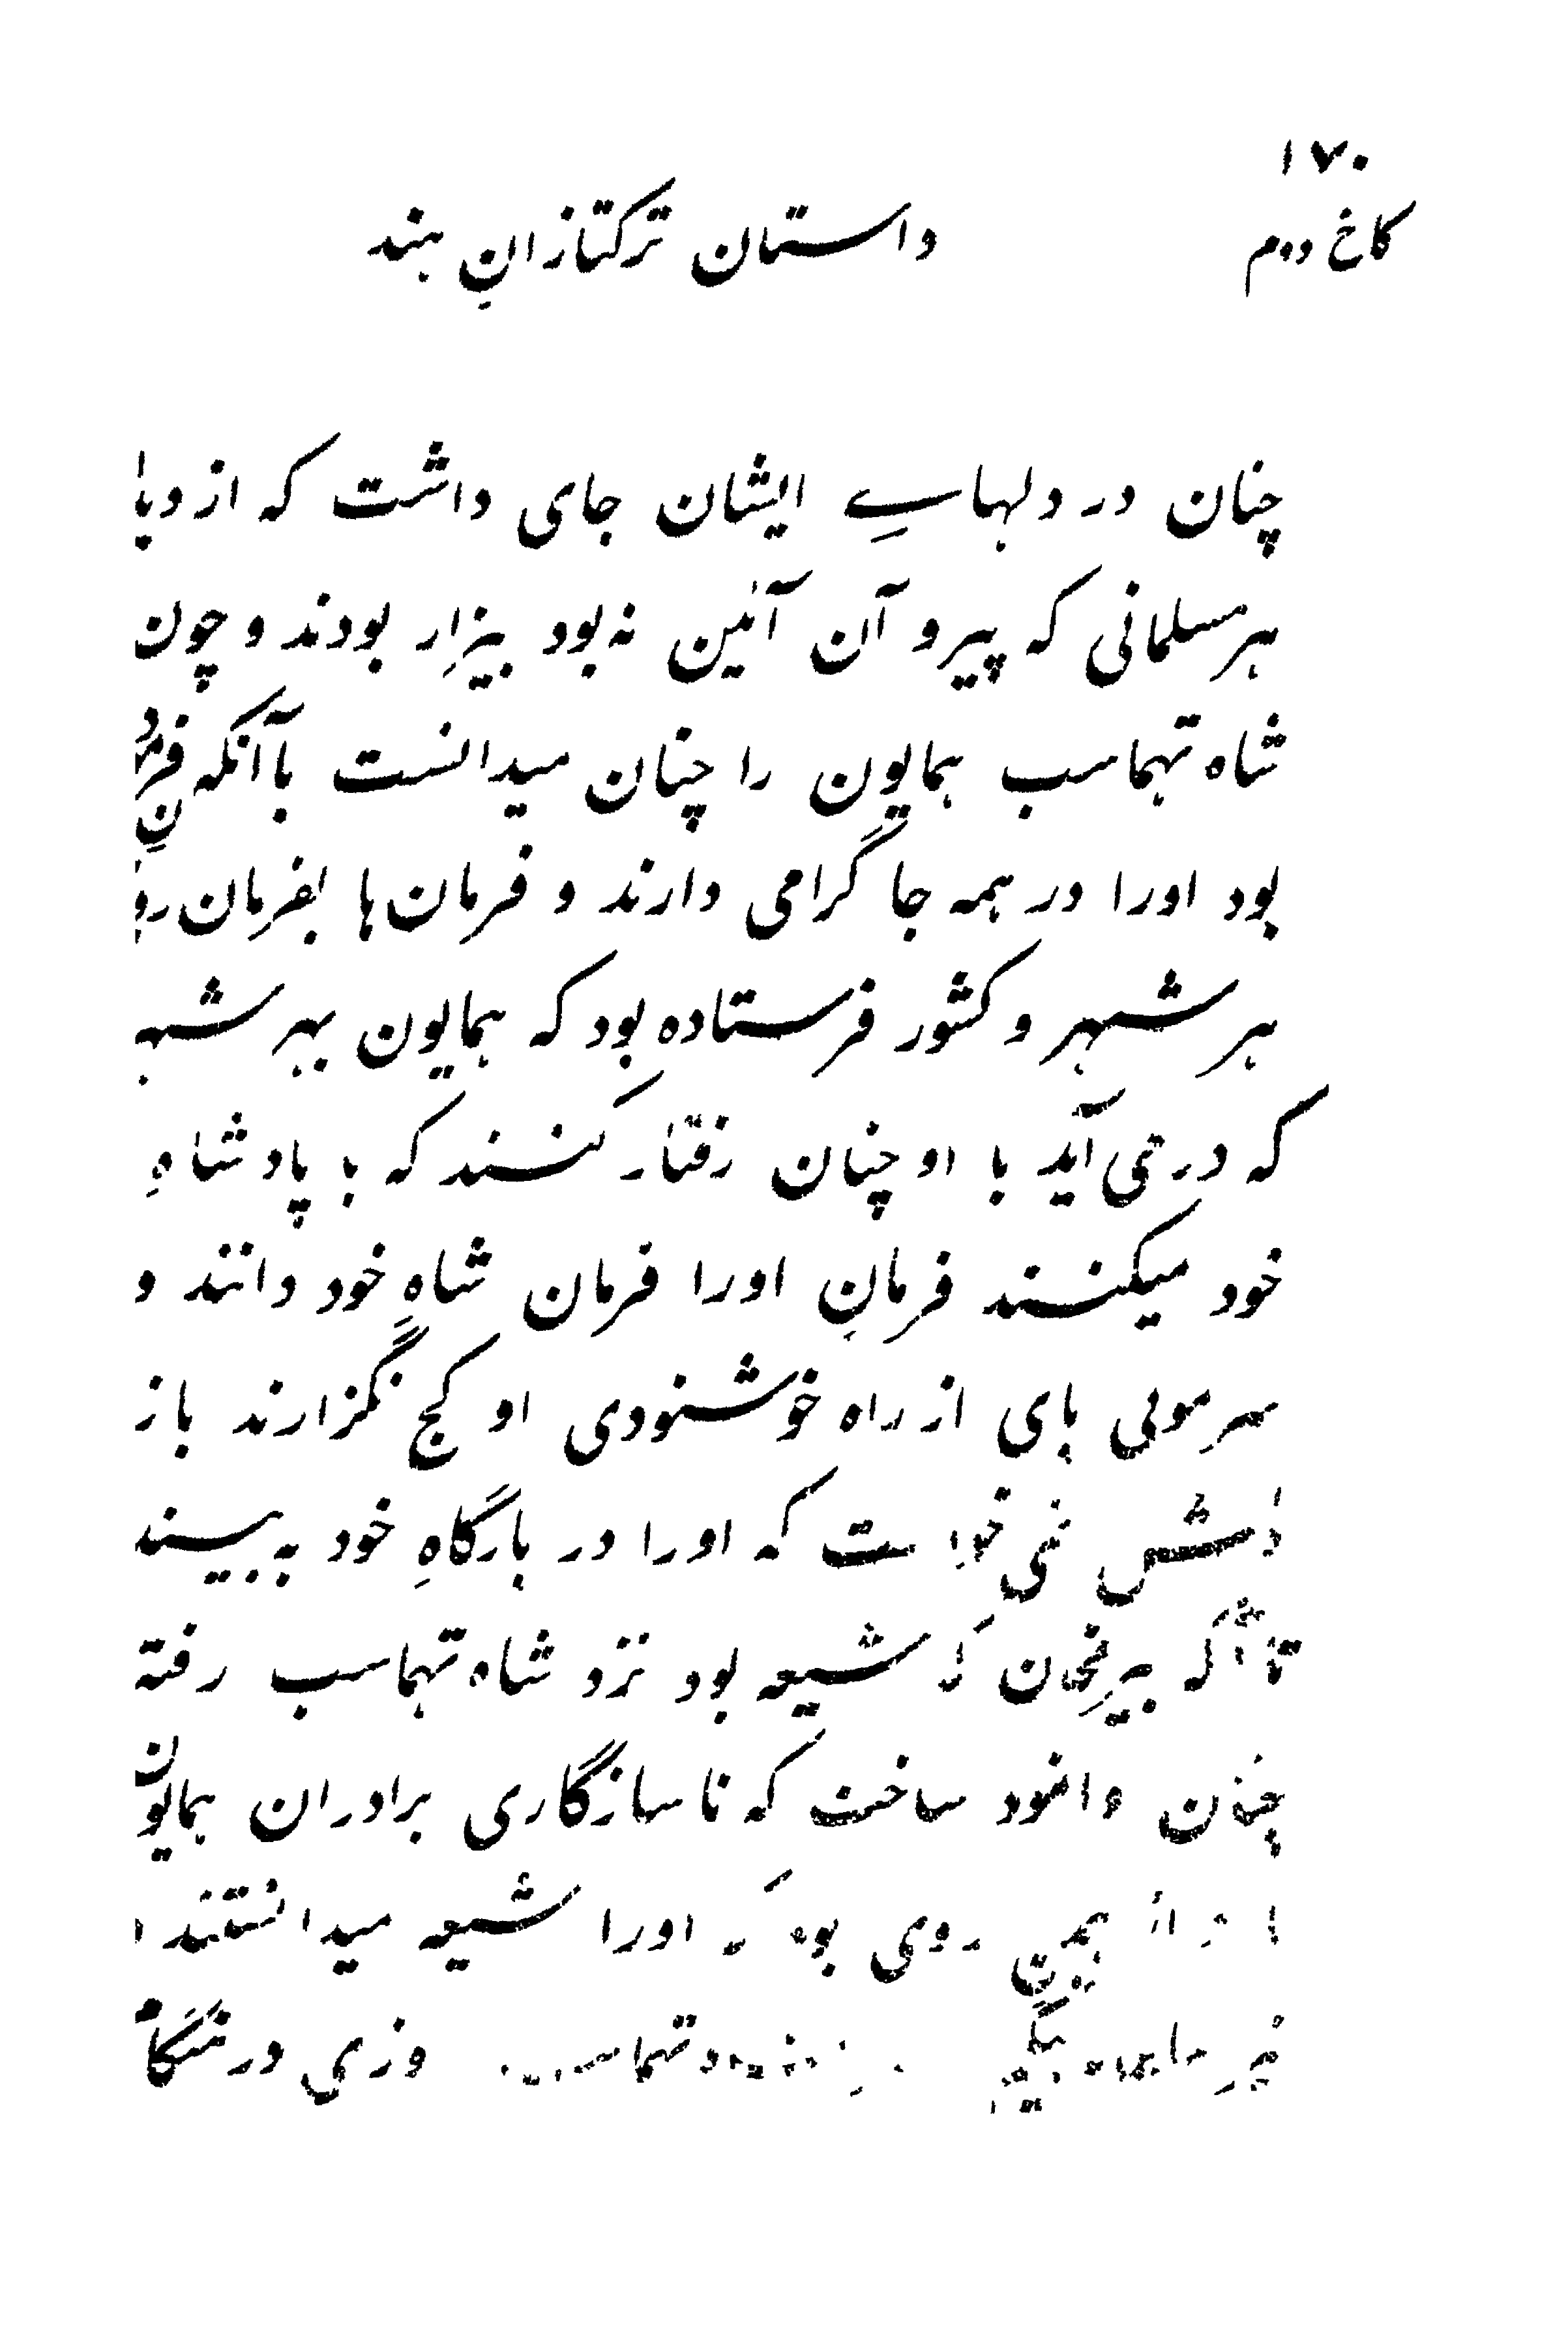 ۱۷۰
کاخ دوم
داستان ترکتازانِ هند
چنان در دلہاےِ ایشان جای داشت کہ از دیا
ہرمسلمانی کہ پیرو آن آئین نہ بود بیزار بودند و چون
شاہ تہماسب ہمایون را چنان میدانست باآنکہ فرمودہ
بود اورا در ہمہ جا گرامی دارند و فرمان ہا بفرمان روا
ہر شہر و کشور فرستادہ بود کہ ہمایون بہر شہر
کہ درمی آید با او چنان رفتار کنند کہ با پادشاہِ
خود میکنند فرمانِ اورا فرمان شاہِ خود دانند و
سرموئی پای از راہ خوشنودی او کج نگزارند باز
دلش نمی خواست کہ اورا در بارگاہِ خود بہ بیند
تا آنکہ بیرمخان کہ شیعہ بود نزد شاہ تہماسب رفتہ
چنان وانمود ساخت کہ ناسازگاری برادران ہمایون
از ہمین روی بود کہ اورا شیعہ میدانستند
روزی در ہنگام